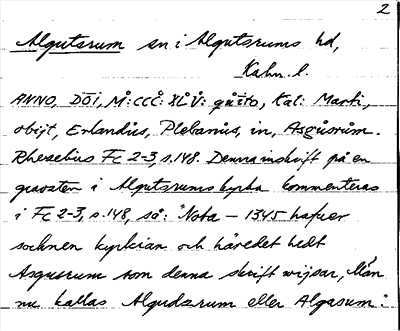 2
Algutsrum sn i Algutsrums hd,
Kalm. l.
ANNO, DŌI, M̊: CCC̊: XL̊V̊: qůīto, Kal: Marti,
obijt, Erlandůs, Plebanůs, in, Asgůsrům.
Rhezelius Fc 2-3, s. 148. Denna inskrift på en
gravsten i Algutsrums kyrka kommenteras
i Fc 2-3, s. 148, så: "Nota - 1345 hafuer
socknen kyrkian och häredet hedt
Asgusrum som denna skrift wijsar, Män
nu kallas Algudzrum eller Algasum":